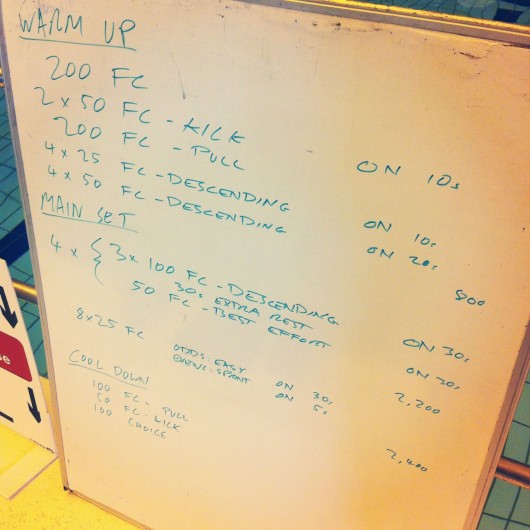 WARM UP
200 FC
2 x 50 FC - KICK ON 10s
200 FC - PULL
4 x 25 FC - DESCENDING ON 10s
4 x 50 FC - DESCENDING ON 20s
800
MAIN SET
4 x { 3 x 100 FC - DESCENDING ON 30s
30s EXTRA REST
50 FC - BEST EFFORT ON 30s
2,200
8x25 FC ODDS: EASY ON 30s
EVENS: SPRINT ON 5s
COOL DOWN
100 FC - PULL
50 FC - KICK
100 CHOICE
2,400